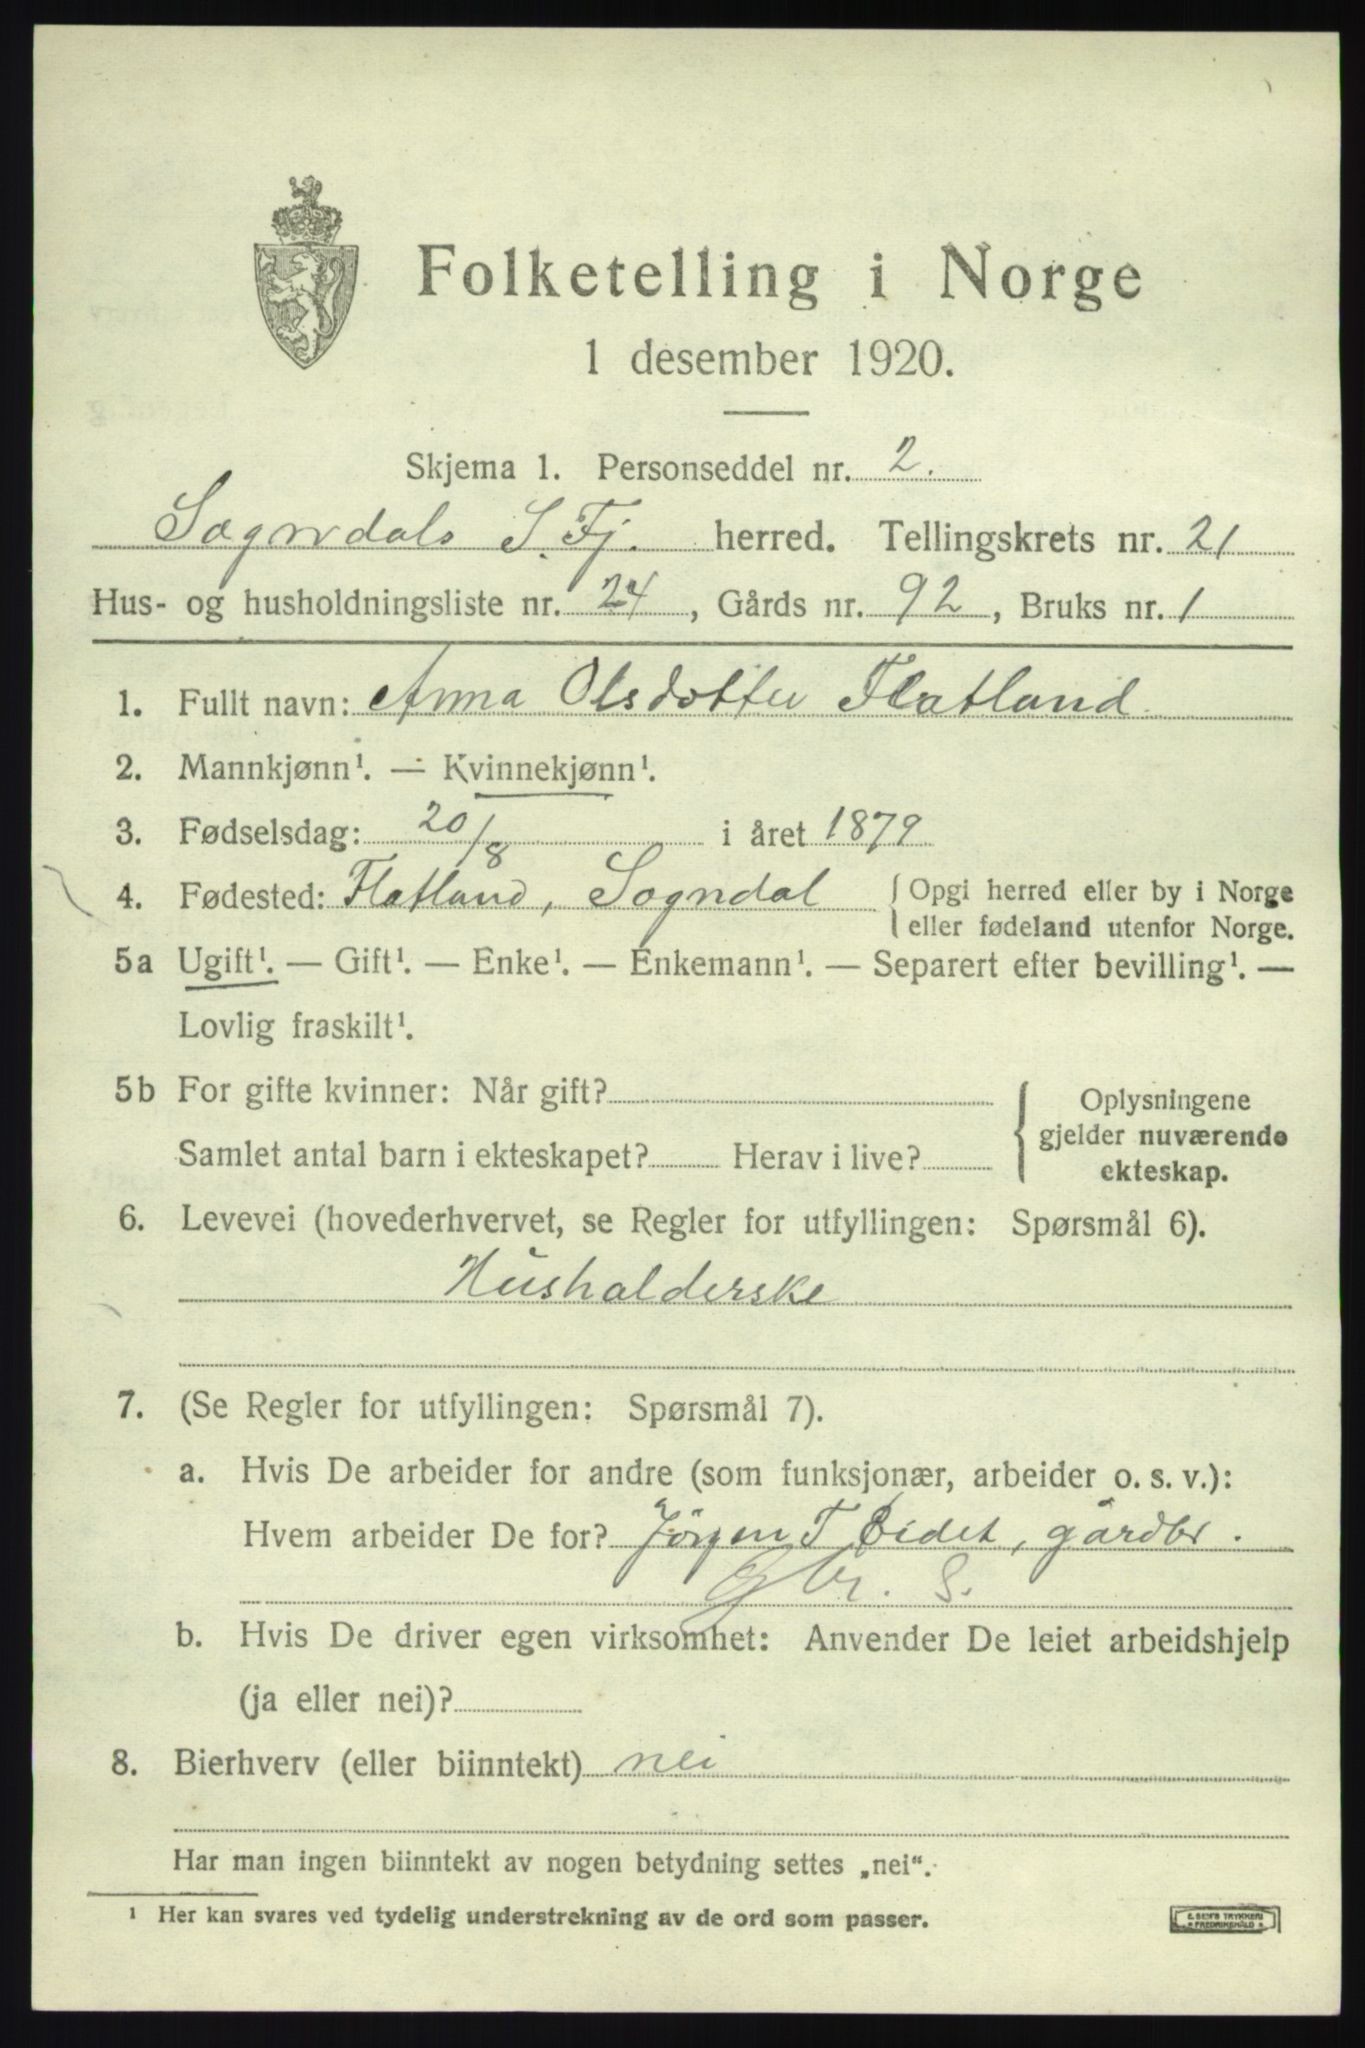 Folketelling i Norge
1 desember 1920.
Skjema 1. Personseddel nr. 2.
Sogndals S. Fj. herred. Tellingskrets nr. 21
Hus- og husholdningsliste nr. 24, Gårds nr. 92, Bruks nr. 1
1. Fullt navn: Anna Olsdotter Flatland
2. Mannkjønn¹. — Kvinnekjønn¹.
3. Fødselsdag: 20/8 i året 1879
4. Fødested: Flatland, Sogndal { Opgi herred eller by i Norge
eller fødeland utenfor Norge.
5a Ugift¹. — Gift¹. — Enke¹. — Enkemann¹. — Separert efter bevilling¹. —
Lovlig fraskilt¹.
5b For gifte kvinner: Når gift?
Samlet antal barn i ekteskapet? Herav i live?
{ Oplysningene
gjelder nuværende
ekteskap.
6. Levevei (hovederhvervet, se Regler for utfyllingen: Spørsmål 6).
Husholderske
7. (Se Regler for utfyllingen: Spørsmål 7).
a. Hvis De arbeider for andre (som funksjonær, arbeider o. s. v.):
Hvem arbeider De for? Jörgen T Eidet, gårdbr.
Gbr. S.
b. Hvis De driver egen virksomhet: Anvender De leiet arbeidshjelp
(ja eller nei)?
8. Bierhverv (eller biinntekt) nei
Har man ingen biinntekt av nogen betydning settes „nei“.
¹ Her kan svares ved tydelig understrekning av de ord som passer.